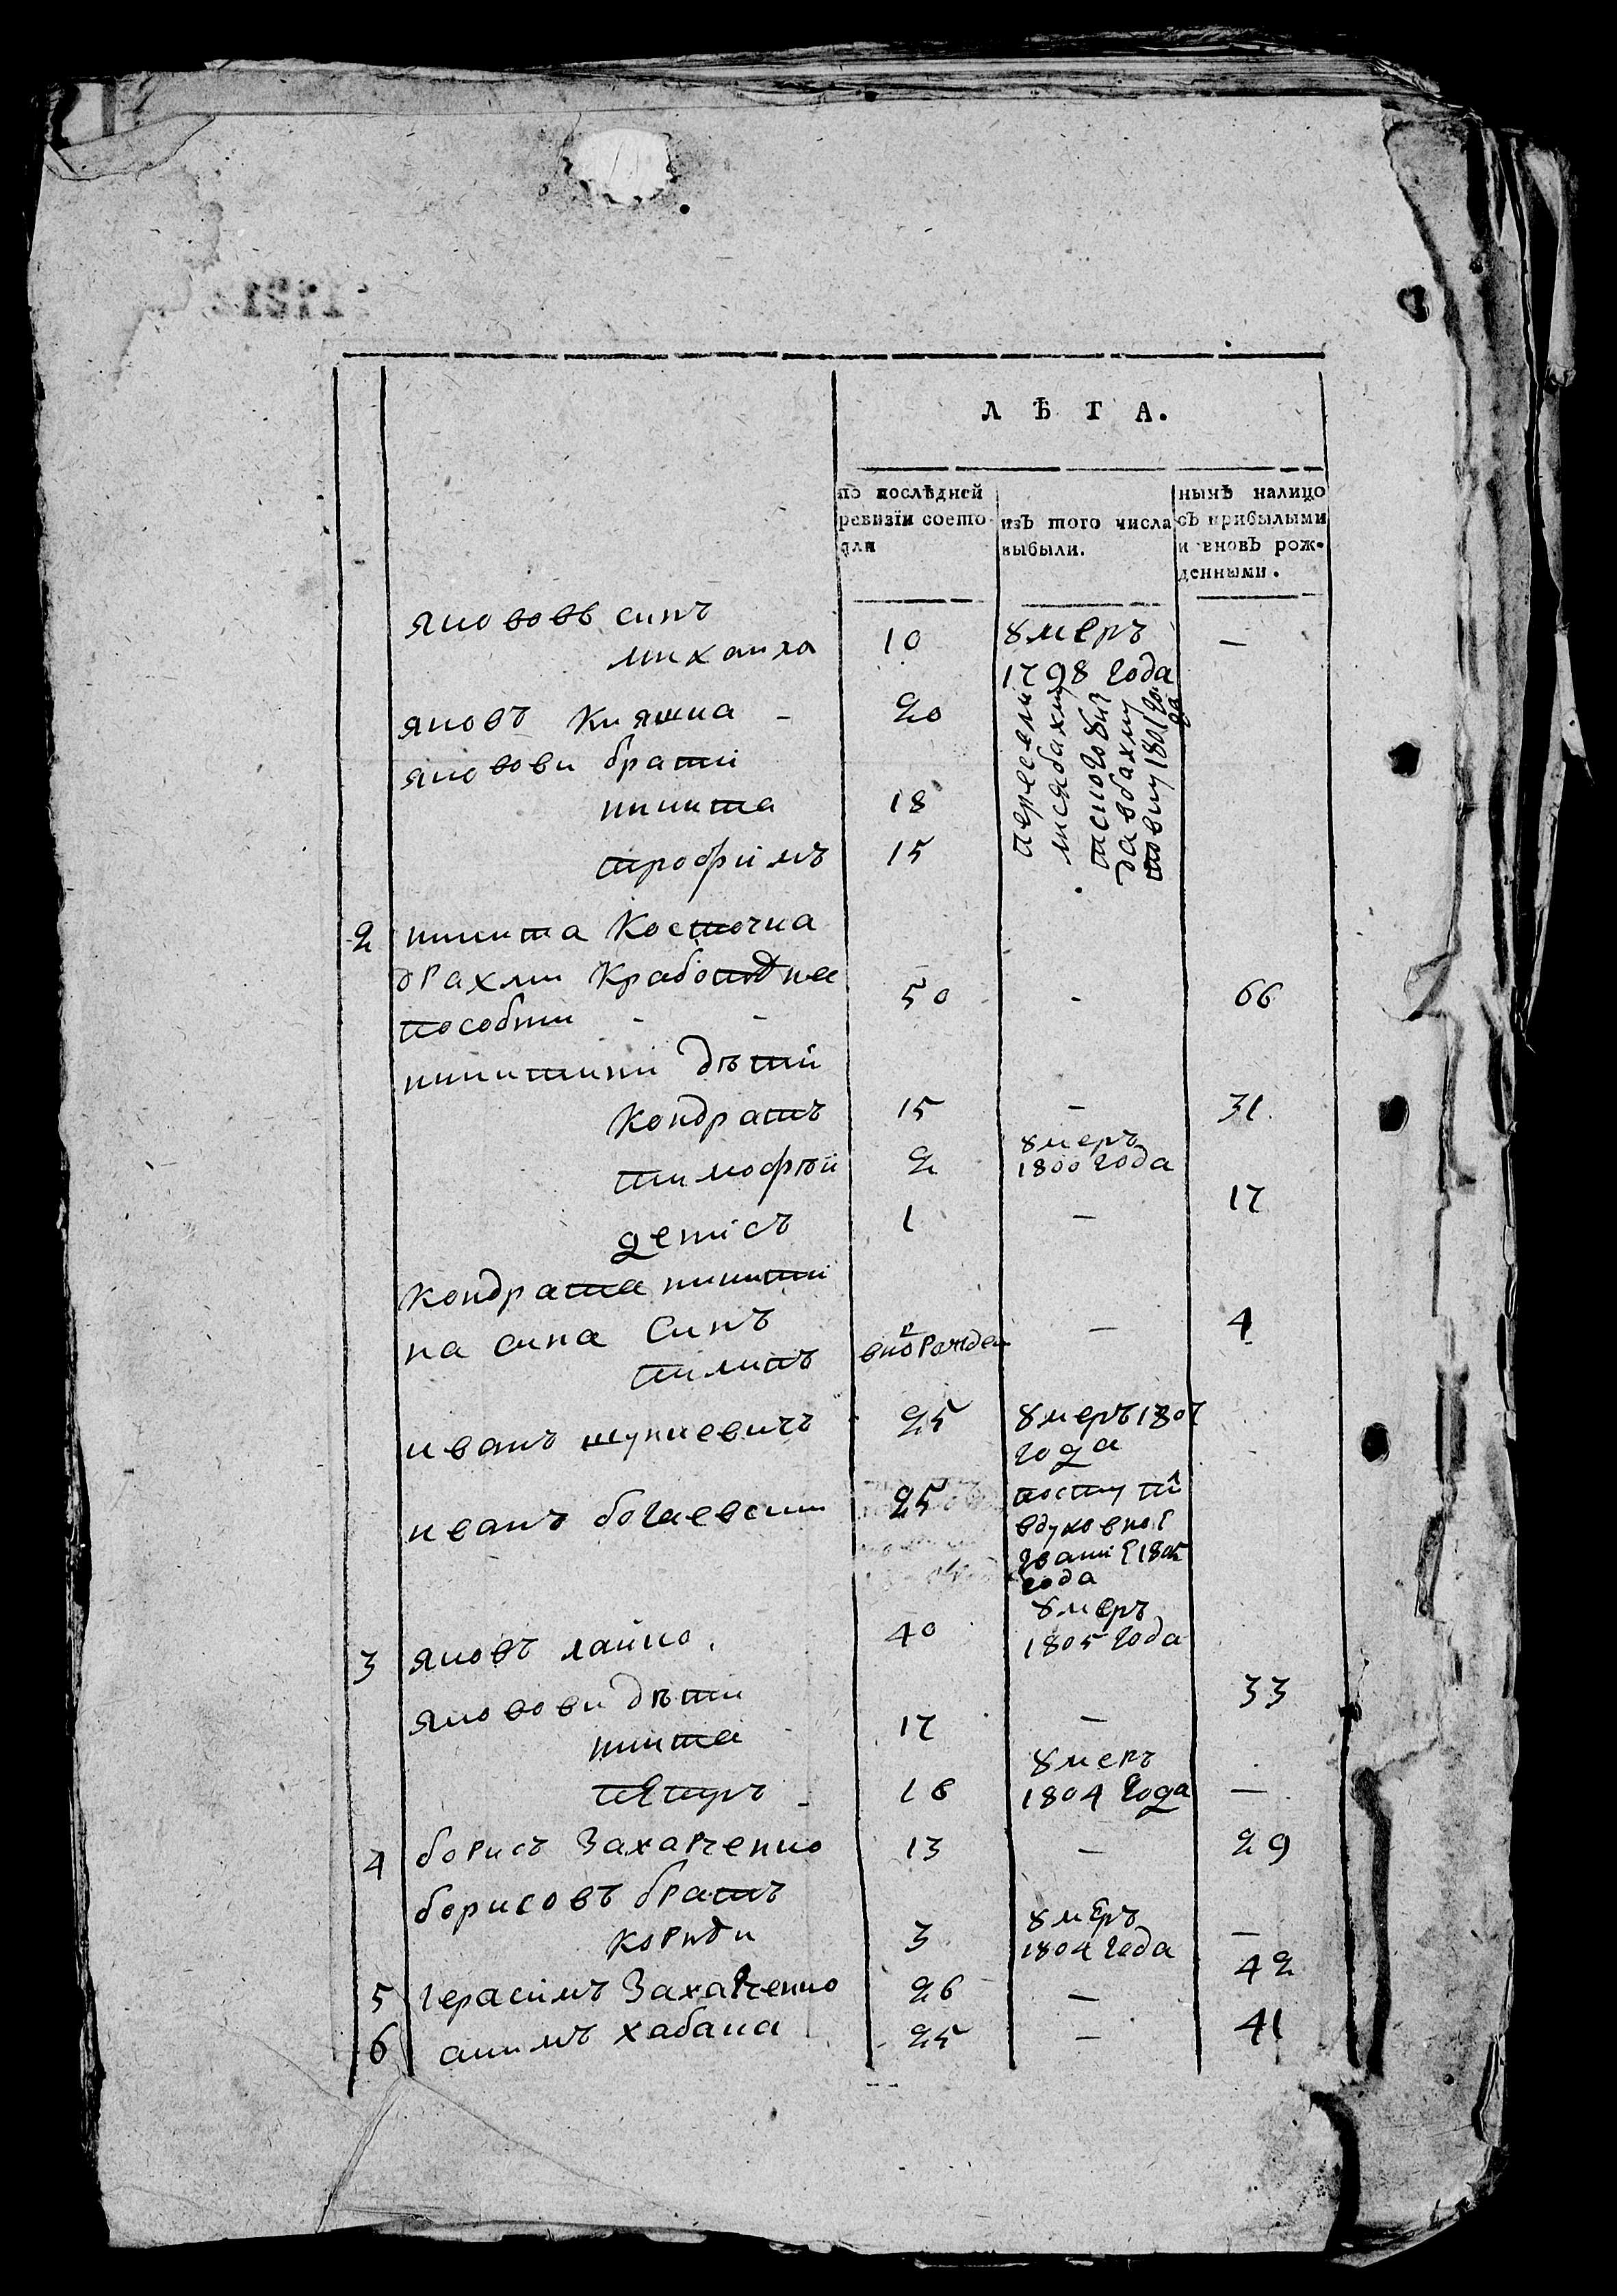 ЛѢТА.
по послѣдней ревизіи состояли
изъ того числа выбыли.
нынѣ налицо съ прибылыми и вновь рожденными.
яковов синъ
михаила 10 умеръ 1798 года —
яковъ Кияшка - 20
яковови брати
никита 18
трофимъ 15
пересели
лися бахму
тского уез
да в бахму
товку 1801 го
да
2 никита Косточка
драхли К работъ не
пособни - - 50 - 66
никитини дѣти
Кондратъ 15 — 31
тимофѣй 2 умеръ 1800 года
денисъ 1 — 17
Кондрата никити
на сина синъ
пилипъ вно рожден — 4
иванъ шункевичъ 25 умеръ 1807 года
иванъ богаевски 25 поступи в духовное звание 1805 года
3 яковъ лайко. 40 умеръ 1805 года
яковови дѣти
никита 17 — 33
петръ - 16 умеръ 1804 года —
4 борисъ Захарченко 13 — 29
борисовъ братъ
Корнѣи 3 умеръ 1804 года —
5 герасимъ Захарченко 26 — 42
6 акимъ хабака 25 — 41